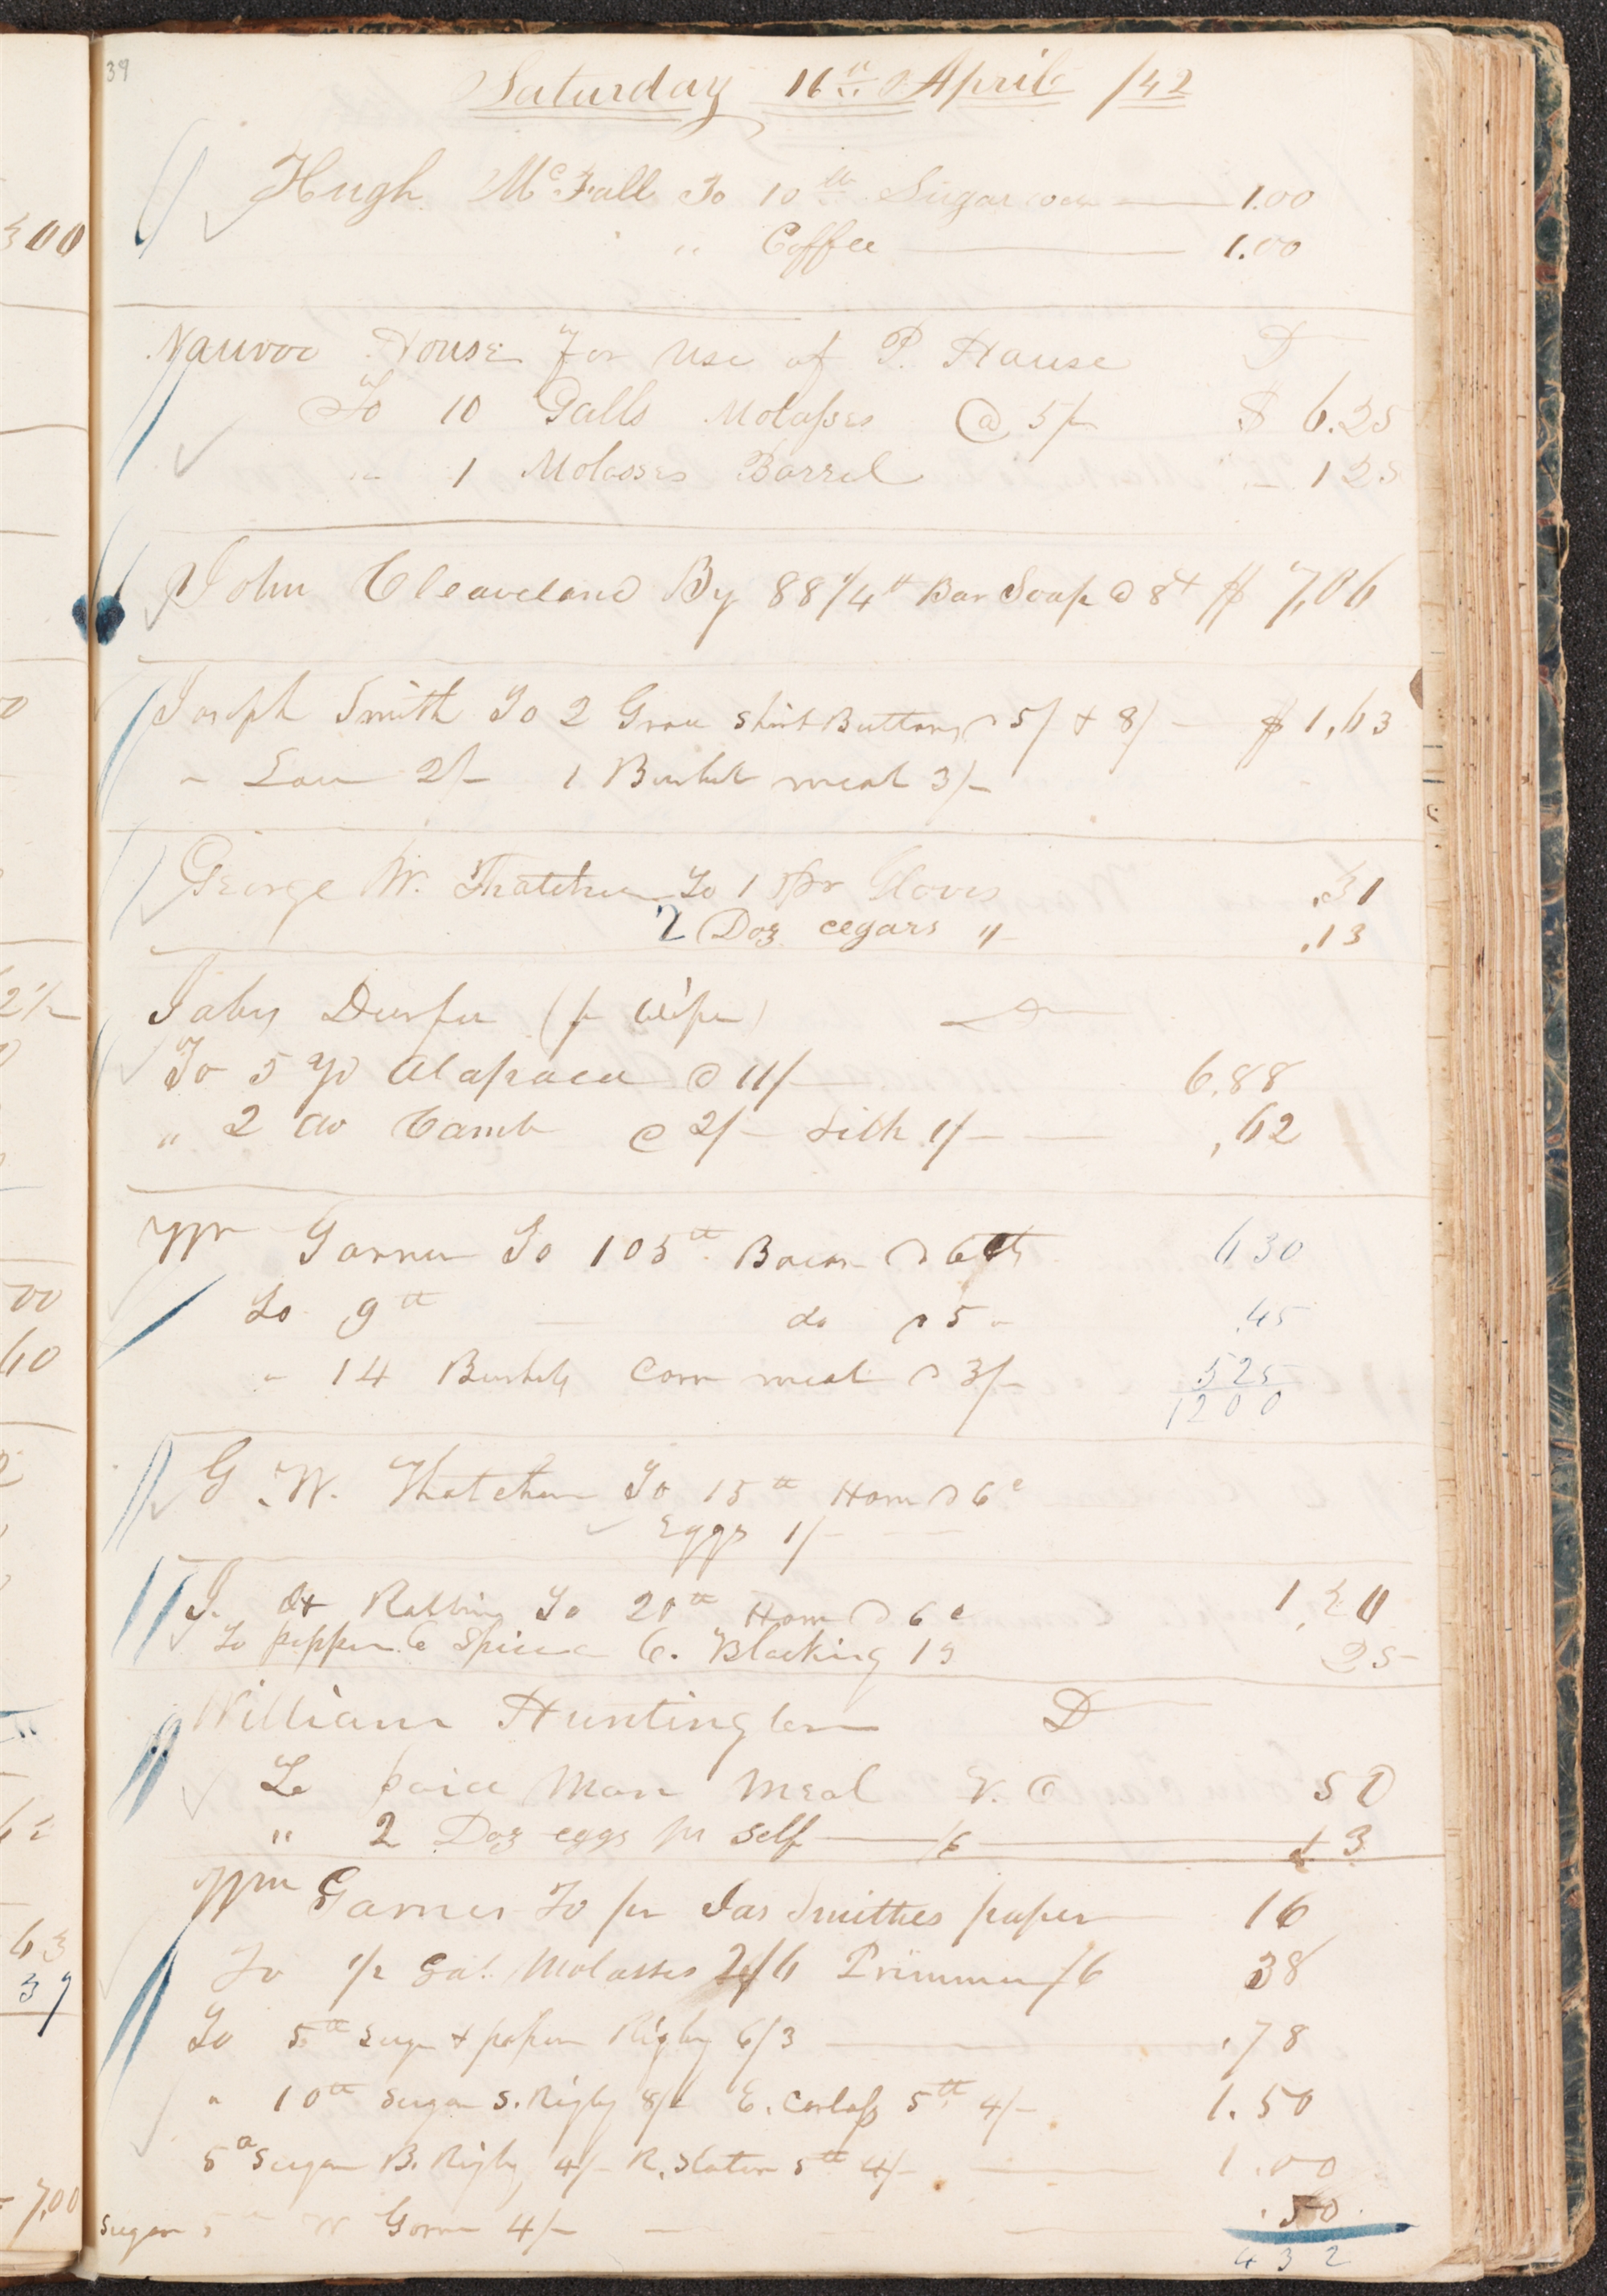 39
Saturday 16th April /42
Hugh McFall To 10 lb Sugar 1.00
" Coffee 1.00
Nauvoo House For use of P. Hause D
To 10 Galls Molasses @ 5/- $ 6.25
" 1 Molasses Barrel 125
John Cleaveland By 88 1/4 lb Bar Soap @ 8 $ 7,06
Joseph Smith To 2 Groce Shirt Buttons @ 5/ + 8/ - $ 1,63
" 2/- 1 Bushel meal 3/-
George W. Thatcher To 1 Pr Gloves .31
2 Doz cegars " .13
Jabus Durfee (pr Wife)
To 5 Yd Alapaca @ 11/- 6.88
" 2 do Camb @ 2/- Silk 1/- ,62
Wm Garner To 105 lb Bacon @ 6 630
To 9 lb do @ 5 " .45
" 14 Bushels Corn meal @ 3/- 525
1200
G. W. Thatcher To 15 lb Ham @ 6c
Eggs 1/-
To 20 lb Ham @ 6c 1,20
To pepper & Spice 6. Blacking 19 25
William Huntington D
To paid Man Meal V. O 50
" 2 Doz eggs pr self /6 13
Wm Garner To pr Jas Smithes paper 16
To 1/2 Gal. Molasses 2/6 Primmer /6 38
To 5 lb Sugar + paper Rigby 6/3 .78
" 10 lb Sugar S. Rigby 8/- E. 5 lb 4/- 1.50
5 lb Sugar B. Rigby 4/- R. Slater 5 lb 4/- 1.00
Sugar 5 lb W Garner 4/- .50
432
300
2/-
00
60
63
37
7,00